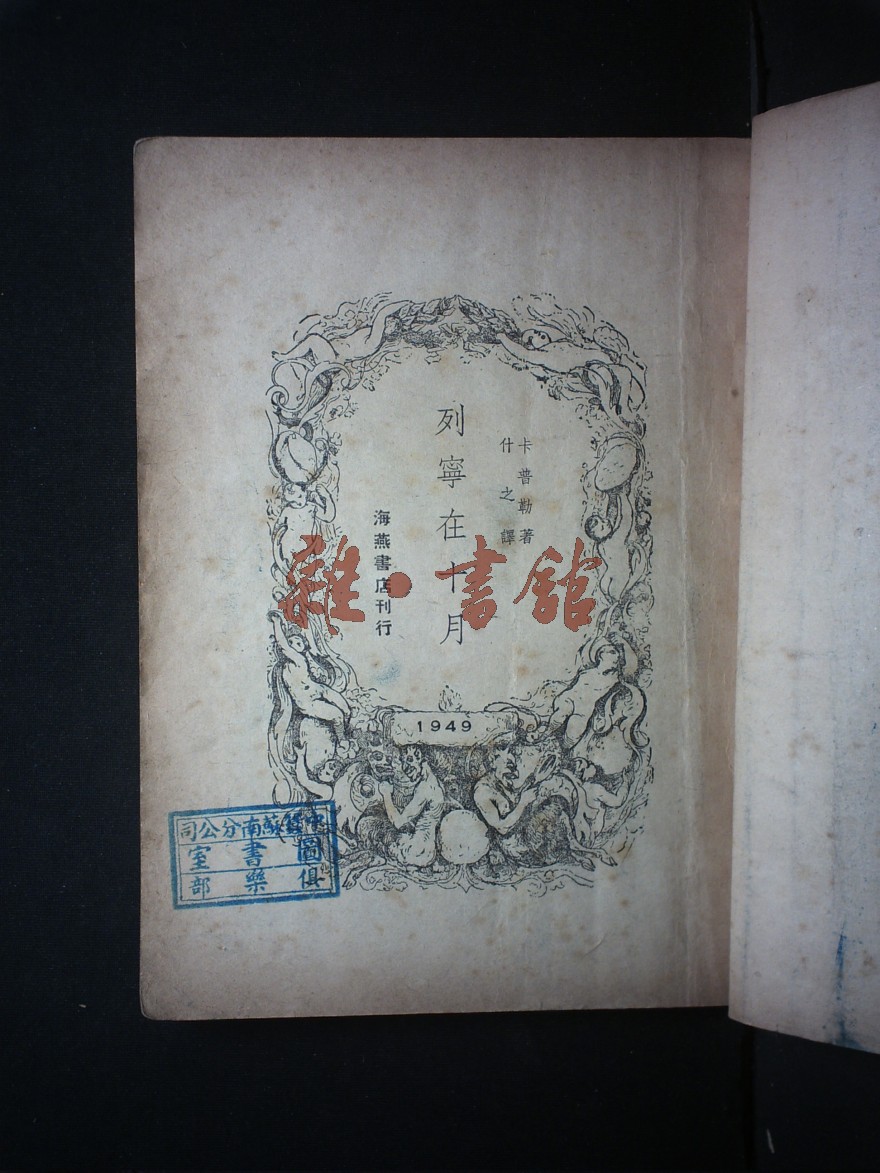 卡普勒著
什之譯
列寧在十月
海燕書店刊行
1949
雜·書館
蘇南分公司
圖書室
俱樂部